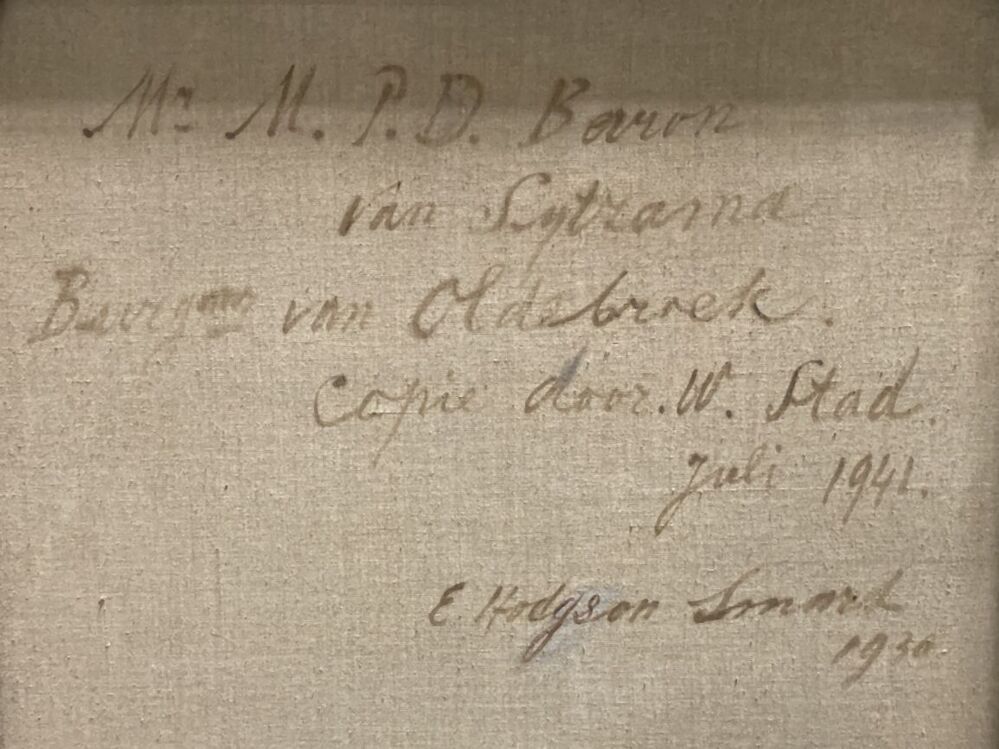 Mr M. P. D. Baron
van Sytzama
Burgmr van Oldebroek.
Copie door. W. Stad.
Juli 1941.
E. Hodgson Smart
1930